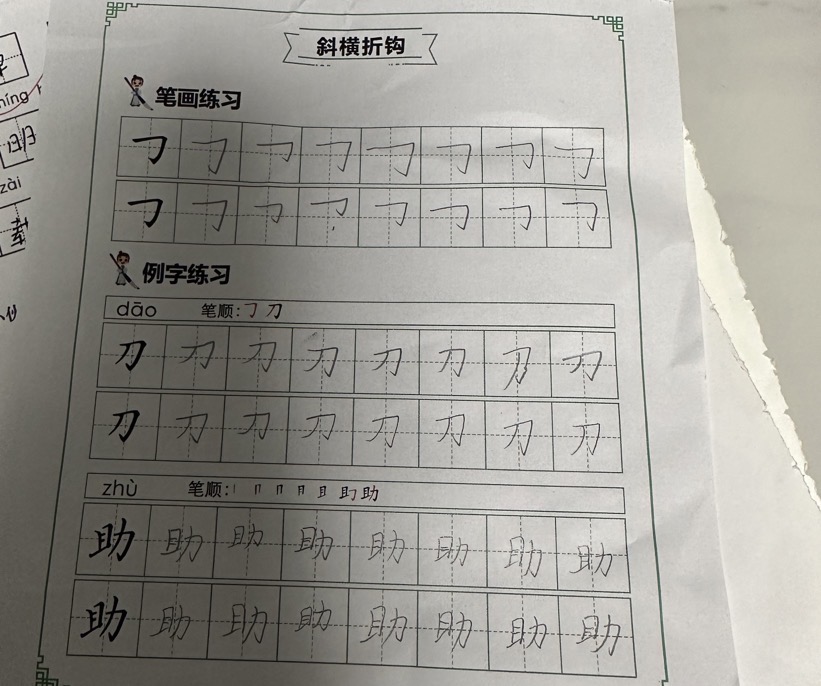 斜横折钩
笔画练习
㇆ ㇆ ㇆ ㇆ ㇆ ㇆ ㇆ ㇆
㇆ ㇆ ㇆ ㇆ ㇆ ㇆ ㇆ ㇆
例字练习
dāo 笔顺:㇆ 刀
刀 刀 刀 刀 刀 刀 刀 刀
刀 刀 刀 刀 刀 刀 刀 刀
zhù 笔顺:丨 冂 冂 月 且 助
助 助 助 助 助 助 助 助
助 助 助 助 助 助 助 助
míng
明
zài